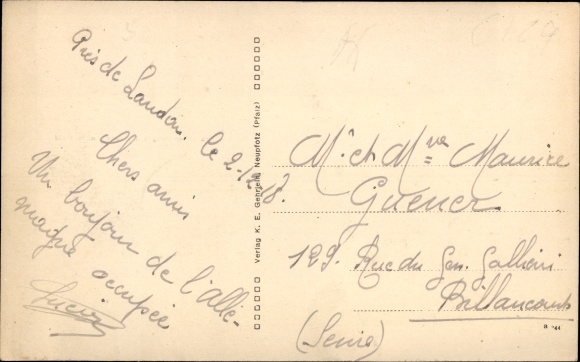 Près de Landau. le 2.12.18.
Chers amis
Un boujour de l'alle-
magne occupée
Lucien
Verlag K. E. Gehrlein, Neupfotz (Pfalz)
Mr et Mme Maurice
Guener
129. Rue du Gen. Gallieni
Billancourt
(Seine)